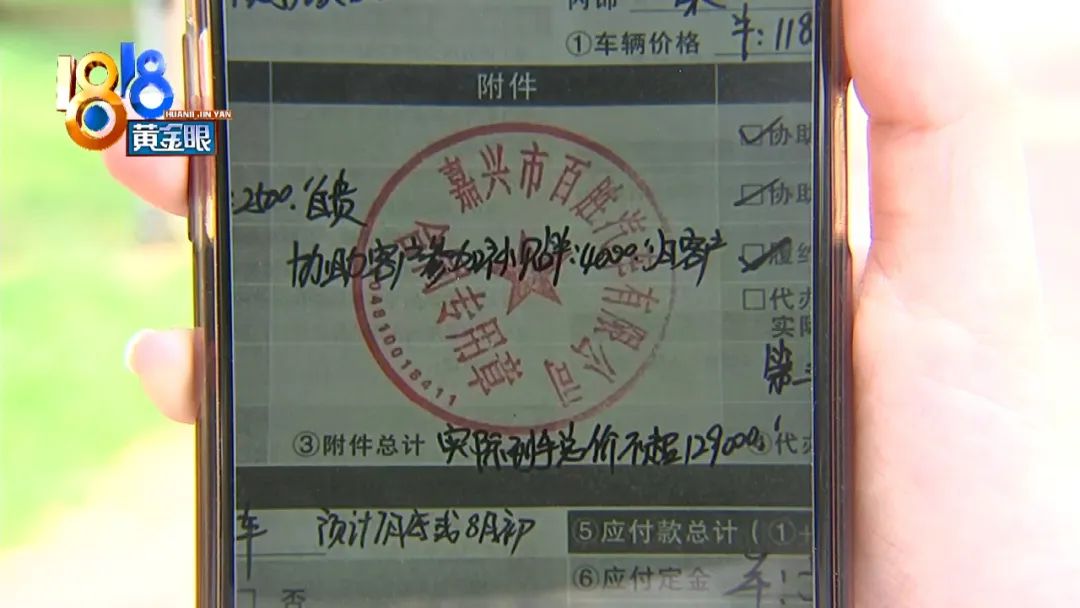 1818
HUANG JIN YAN
黄金眼
①车辆价格
羊：118
附件
协助
:2500.自费
协助
协助客户参加补贴 羊:4000.
客户
履约
代办
实际
嘉兴市百胜汽
有限公司
合同专用章
04810018411
第
③附件总计 实际到手总价不超129000.
④代办
车 预计7月底或8月初
⑤应付款总计（①+
⑥应付定金
否